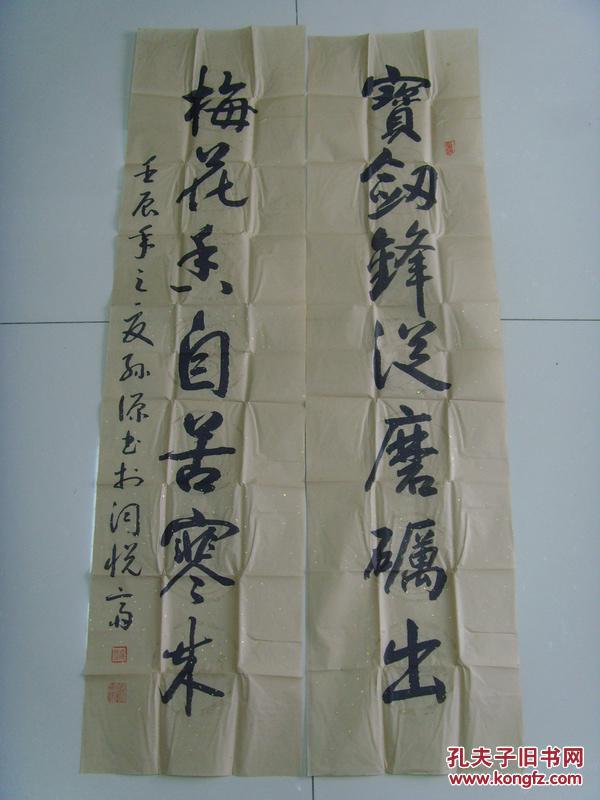 寶劔鋒從磨礪出
梅花香自苦寒来
壬辰年之夏孙源书於润悦斋
孔夫子旧书网
www.kongfz.com